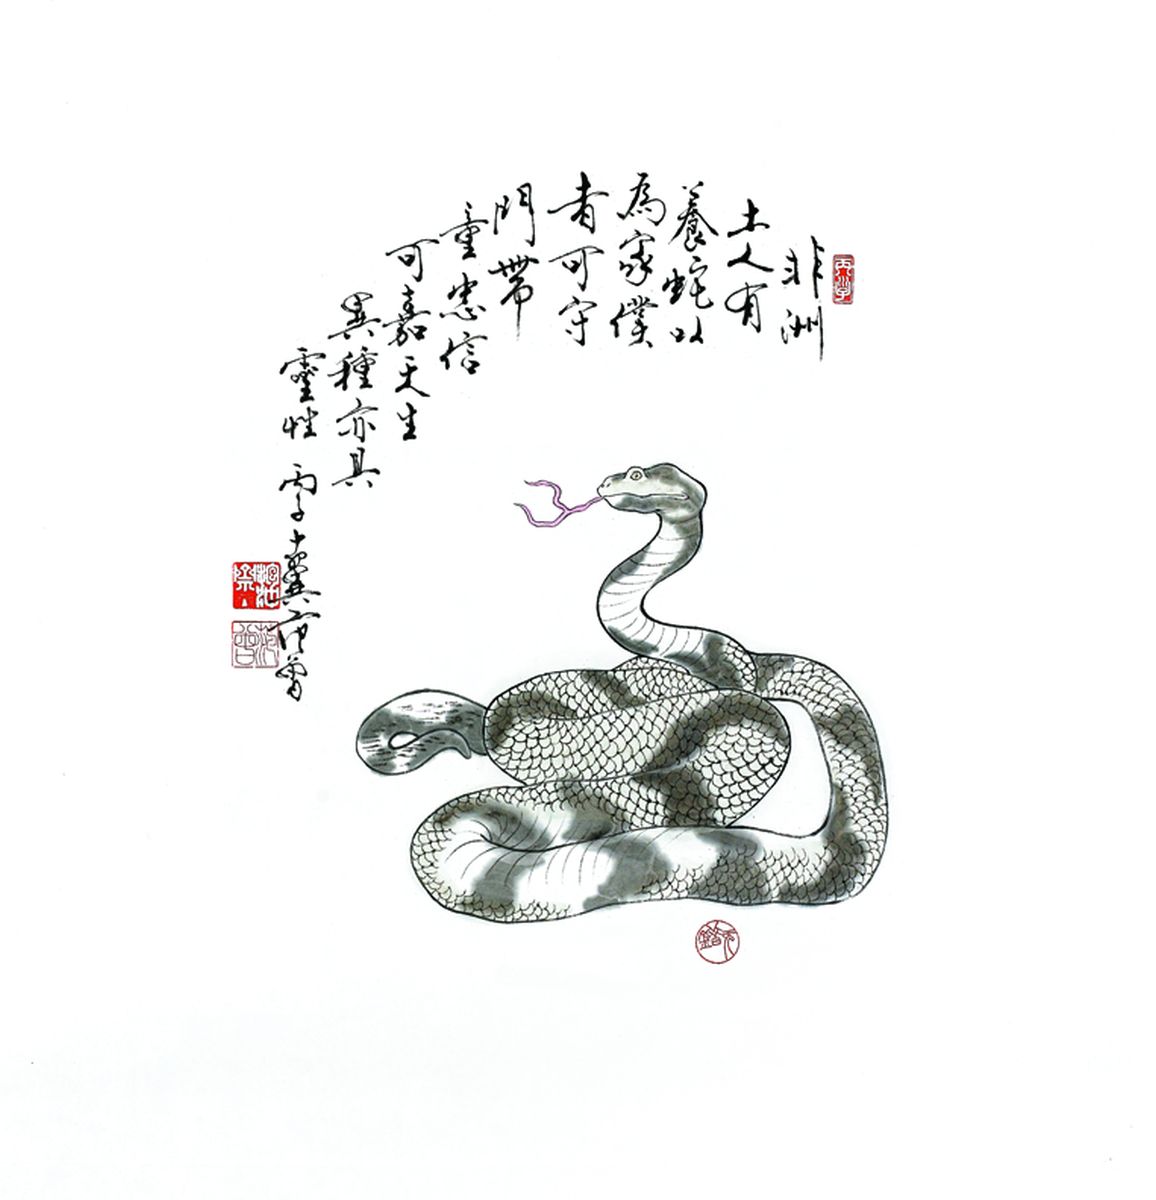 非洲
土人有
養蛇以
為家僕
者可守
門帶
童忠信
可嘉天生
異種亦具
靈性
十翼范曾